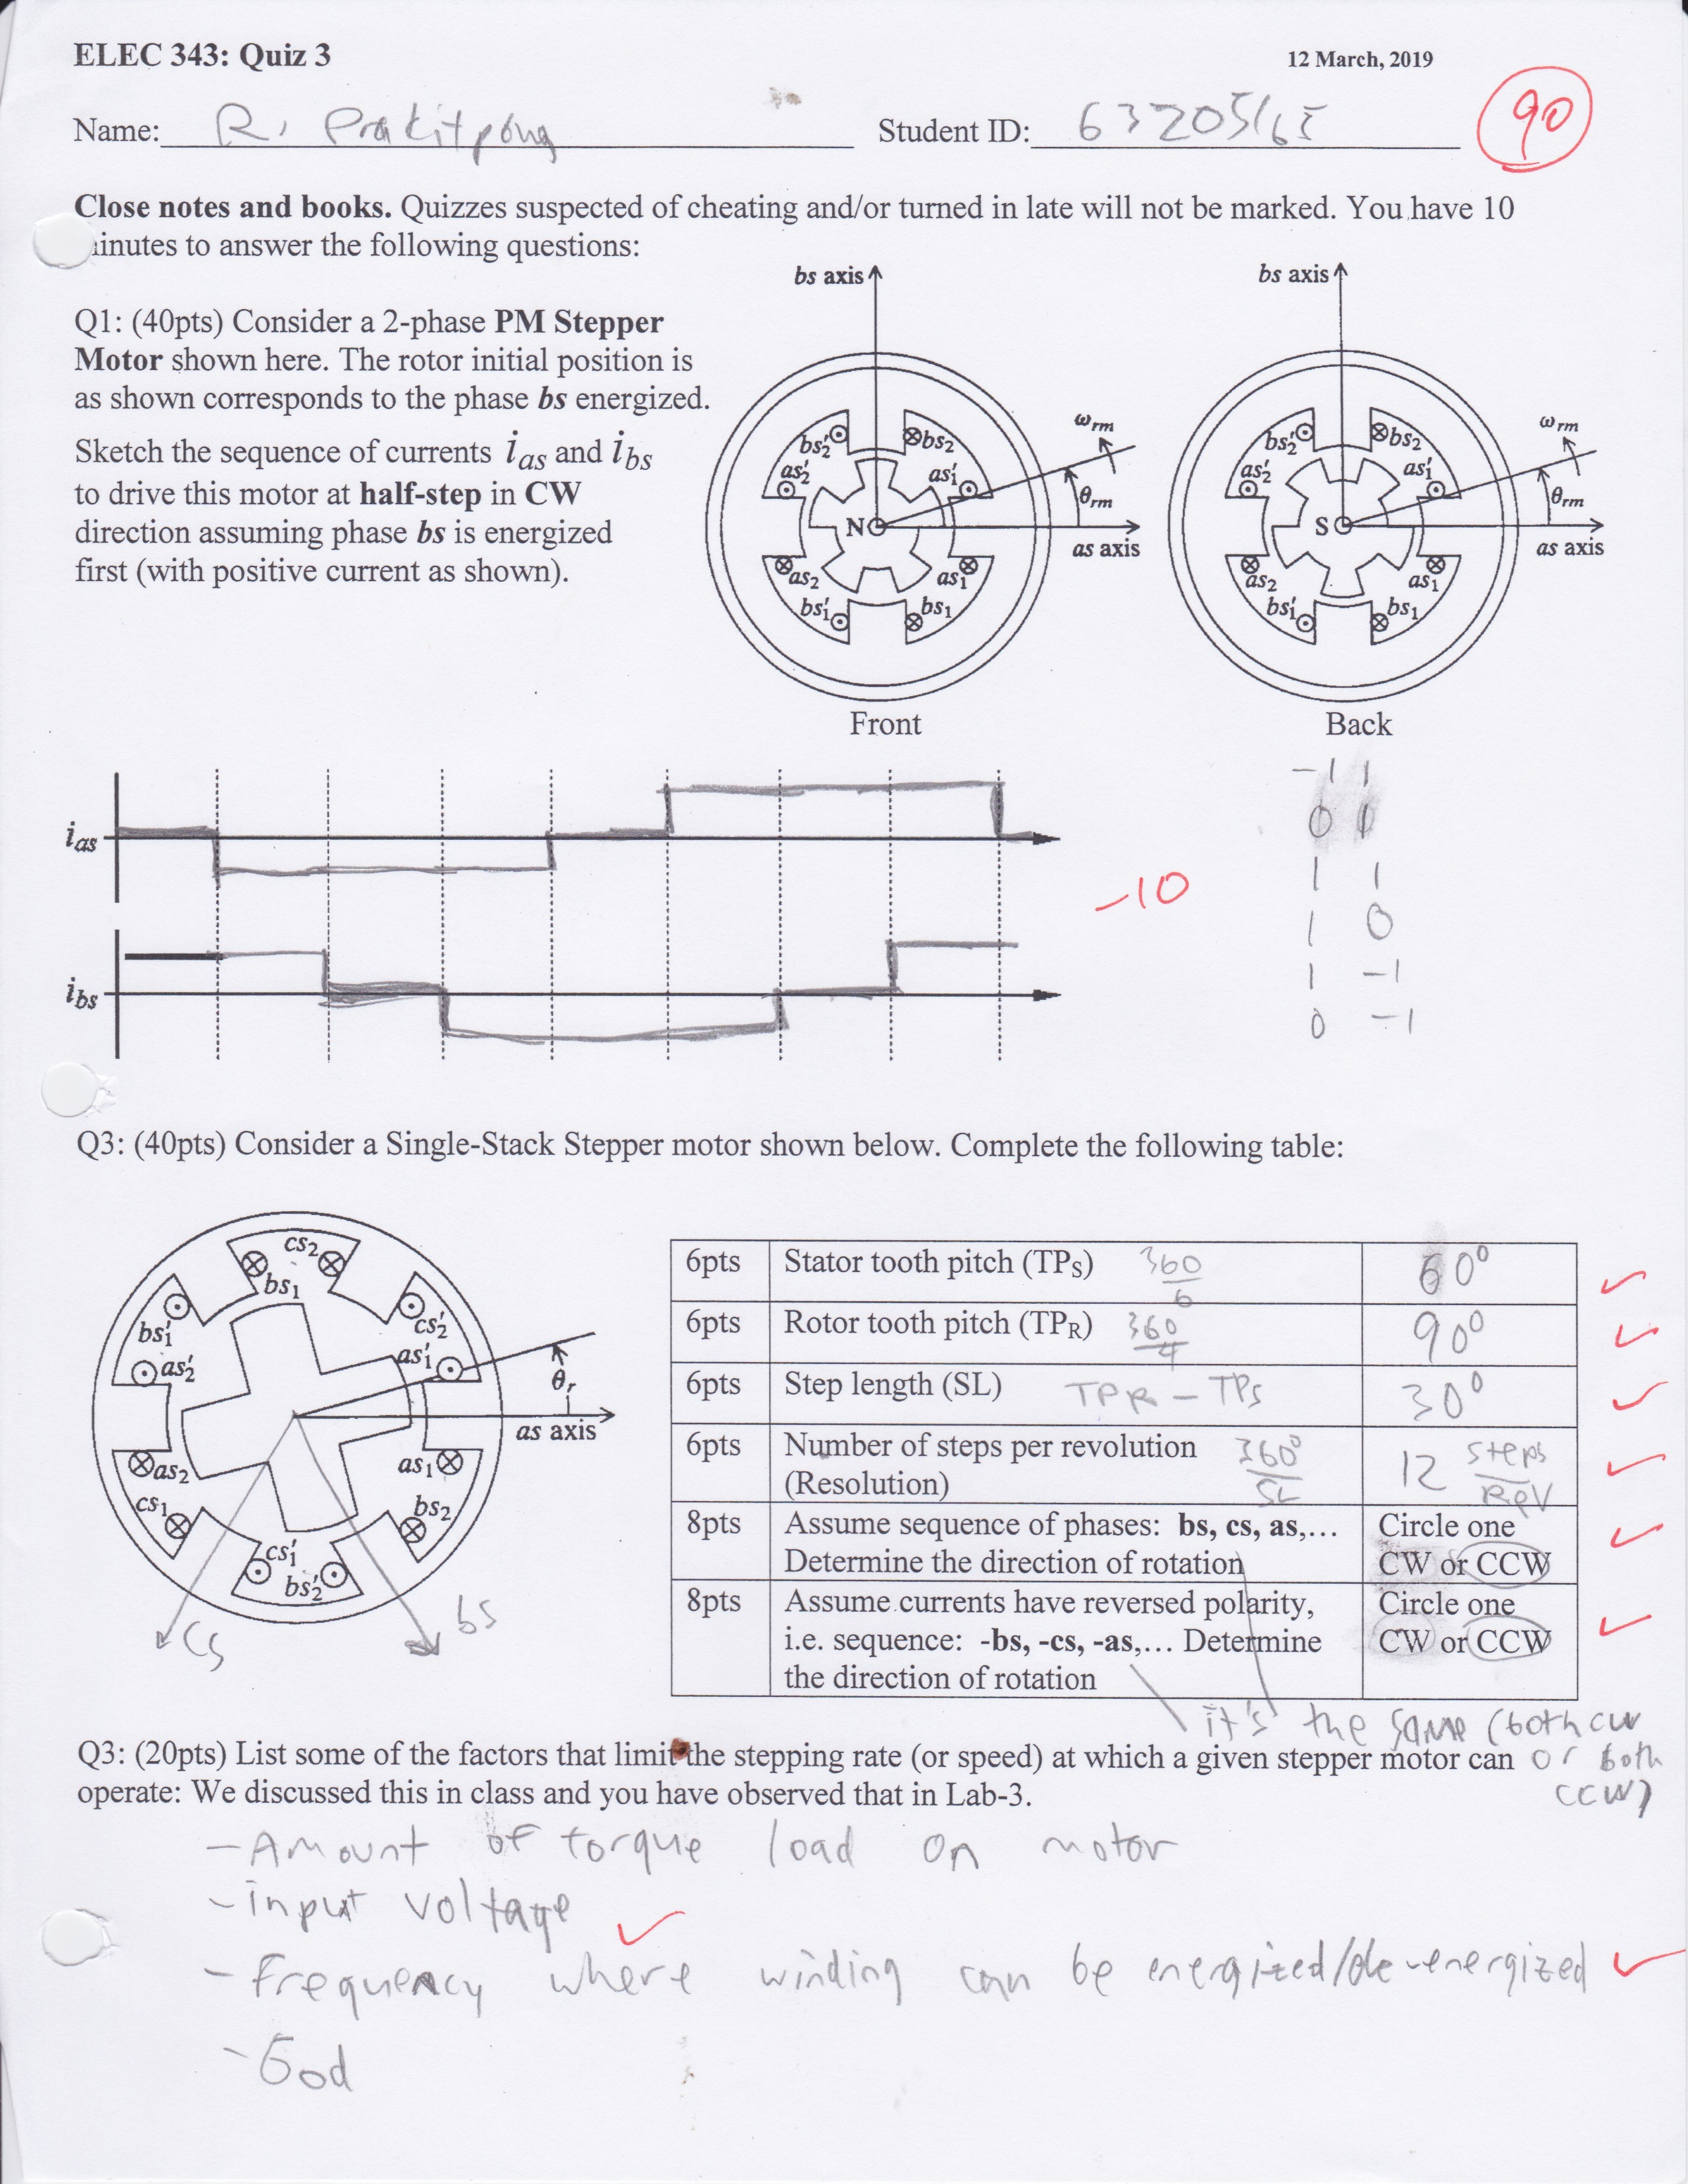 ELEC 343: Quiz 3
12 March, 2019
90
Name: R. Prakitpong
Student ID: 63205165
Close notes and books. Quizzes suspected of cheating and/or turned in late will not be marked. You have 10
inutes to answer the following questions:
Q1: (40pts) Consider a 2-phase PM Stepper
Motor shown here. The rotor initial position is
as shown corresponds to the phase bs energized.
Sketch the sequence of currents ias and ibs
to drive this motor at half-step in CW
direction assuming phase bs is energized
first (with positive current as shown).
bs axis
bs'2 bs2
ωrm
as'2 as'1
θrm
N
as axis
as2 as1
bs'1 bs1
Front
bs axis
bs'2 bs2
ωrm
as'2 as'1
θrm
S
as axis
as2 as1
bs'1 bs1
Back
ias
ibs
-10
-1 1
0 1
1 1
1 0
1 -1
0 -1
Q3: (40pts) Consider a Single-Stack Stepper motor shown below. Complete the following table:
cs2
bs1
bs'1 cs'2
as'2 as'1
θr
as axis
as2 as1
cs1 bs2
cs'1
bs'2
cs
bs
6pts Stator tooth pitch (TPS) 360/6 60°
6pts Rotor tooth pitch (TPR) 360/4 90°
6pts Step length (SL) TPR - TPS 30°
6pts Number of steps per revolution 360°/SL 12 steps/Rev
(Resolution)
8pts Assume sequence of phases: bs, cs, as,... Circle one
Determine the direction of rotation CW or CCW
8pts Assume currents have reversed polarity, Circle one
i.e. sequence: -bs, -cs, -as,... Determine CW or CCW
the direction of rotation
it's the same (both cw
or both
ccw)
Q3: (20pts) List some of the factors that limit the stepping rate (or speed) at which a given stepper motor can
operate: We discussed this in class and you have observed that in Lab-3.
- Amount of torque load on motor
- input voltage
- Frequency where winding can be energized/de-energized
- God